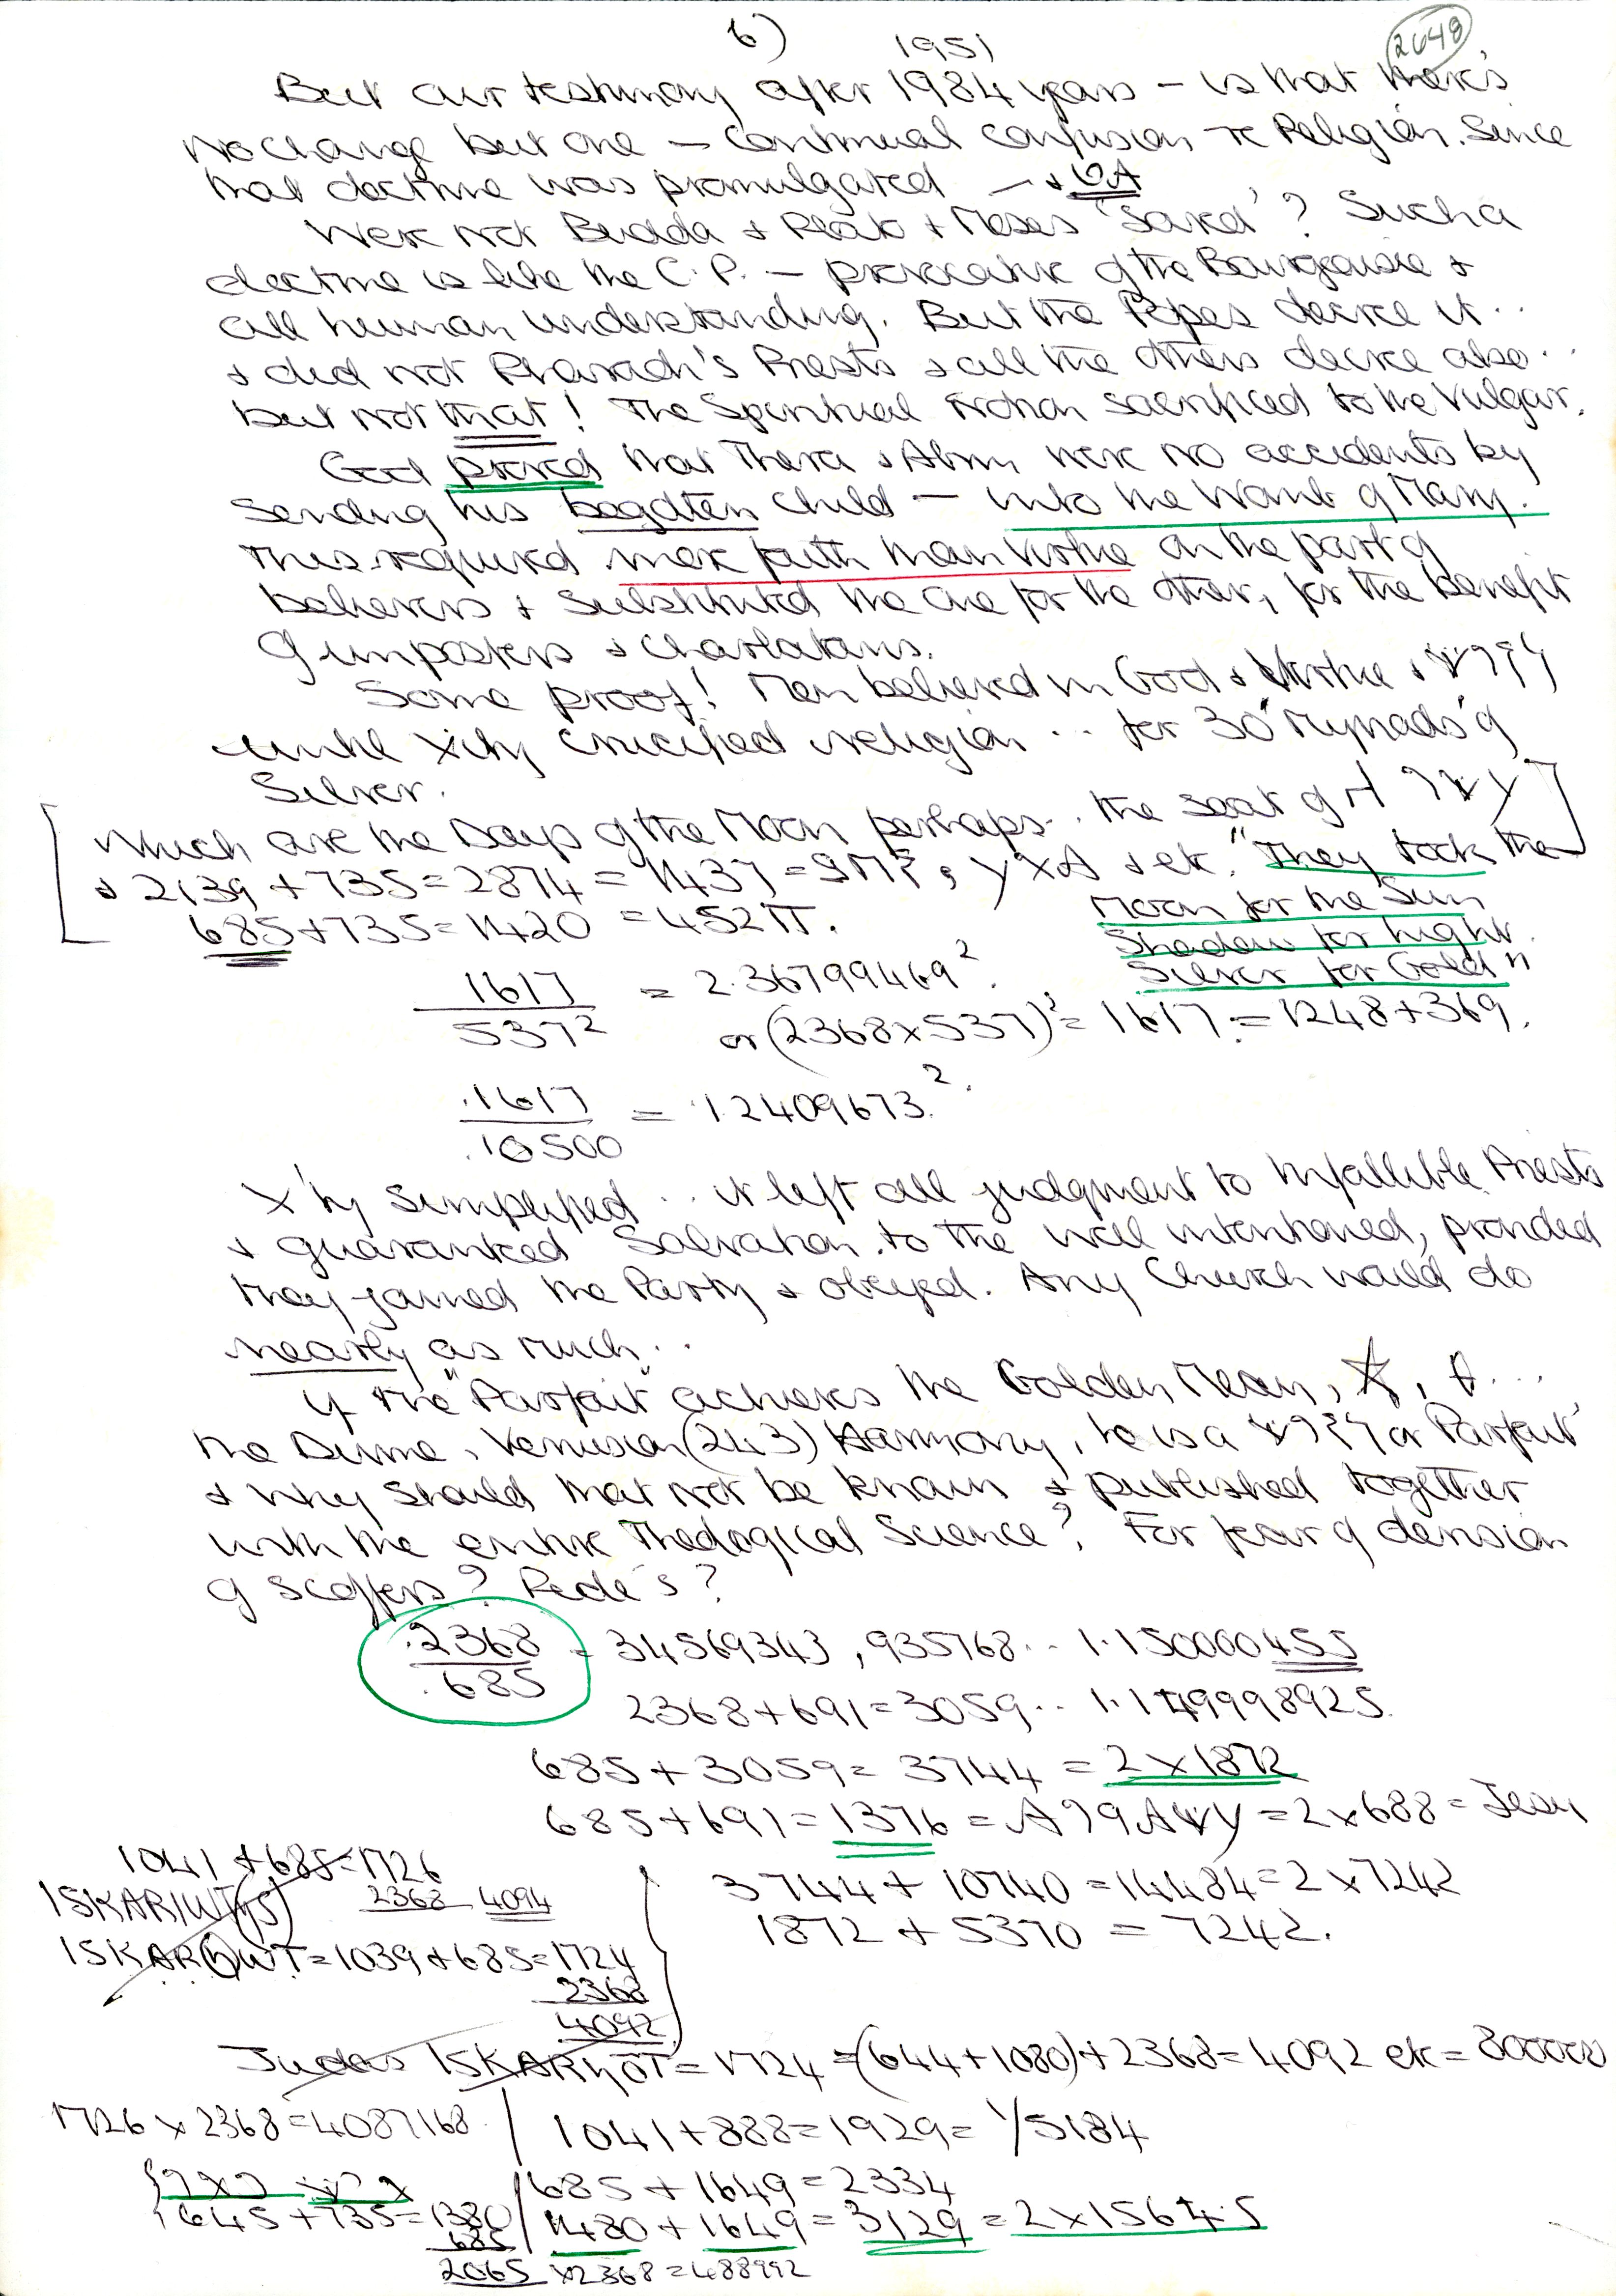 6)
1951
2648
But our testimony after 1984 years – is that there's
No change but one – Continual confusion re Religion. Since
that doctrine was promulgated –
Were not Budda & Plato & Moses 'Saved'? Such a
doctrine is like the C.P. – prerogative of the Bourgeoisie &
all human understanding. But the Popes decree it..
& did not Pharaoh's Priests & all the others decree also..
but not that! The Spiritual sacrificed to the Vulgar.
God proved that Thera & were no accidents by
Sending his begotten Child – into the Womb of Mary.
This required more faith than Virtue on the part of
believers & substituted the one for the other, for the benefit
of imposters & Charlatans.
Some proof! Men believed in God & Virtue &
until X'ity crucified religion ... for 30 "Myriads" of
Silver.
[Which are the Days of the Moon perhaps.. the seat of
& 2139 + 735 = 2874 = 1437 = & etc. "They took the
Moon for the Sun
685 + 735 = 1420 = 452π.
Shadow for Light
Silver for Gold"
1617 / 537² = 2.36799469².
or (2368 x 537)² = 1617. = 1248 + 369.
.1617 / .10500 = 1.2409673.².
X'ity simplified .. it left all judgment to Infallible Priests
& guaranteed Salvation to the well intentioned, provided
they joined the Party & obeyed. Any Church would do
nearly as much..
If the "Parfait" achieves the Golden Mean, ☆,
the Divine, Venusian (243) Harmony, he is a or 'Parfait'
& why should that not be known & published together
with the entire Theological Science? For fear of derision
of scoffers? Rede's?
.2368 / .685 = 34569343, 935768.. 1.150000455
2368 + 691 = 3059.. 1.149998925.
685 + 3059 = 3744 = 2 x 1872
685 + 691 = 1376 = = 2 x 688 =
1041 + 685 = 1726
ISKARIWT(HS) 2368 4094
3744 + 10740 = 14484 = 2 x 7242
1872 + 5370 = 7242.
ISKARIWT = 1039 + 685 = 1724
2368
4092
Judas ISKARIOT = 1724 = (644 + 1080) + 2368 = 4092 etc = 800000
1726 x 2368 = 4087168.
1041 + 888 = 1929 = 1/5184
685 + 1649 = 2334
645 + 735 = 1380
1480 + 1649 = 3129 = 2 x 1564.5
685
2065 x 2368 = 488992